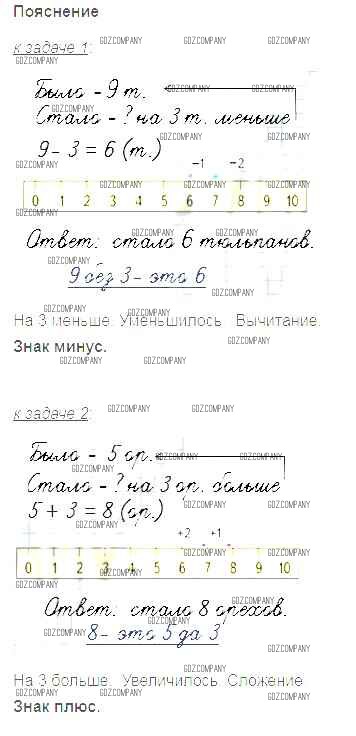 Пояснение
к задаче 1:
Было - 9 т.
Стало - ? на 3 т. меньше
9 - 3 = 6 (т.)
-1 -2
0 1 2 3 4 5 6 7 8 9 10
Ответ: стало 6 тюльпанов.
9 без 3 - это 6
На 3 меньше. Уменьшилось. Вычитание.
Знак минус.
к задаче 2:
Было - 5 ор.
Стало - ? на 3 ор. больше
5 + 3 = 8 (ор.)
+2 +1
0 1 2 3 4 5 6 7 8 9 10
Ответ: стало 8 орехов.
8 - это 5 да 3
На 3 больше. Увеличилось. Сложение
Знак плюс.
GDZCOMPANY